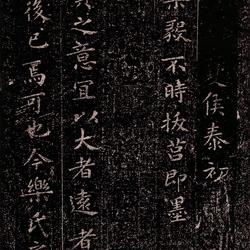 夏侯泰初
樂毅不時拔莒即墨
其之意宜以大者遠者
後已焉可也今樂氏之